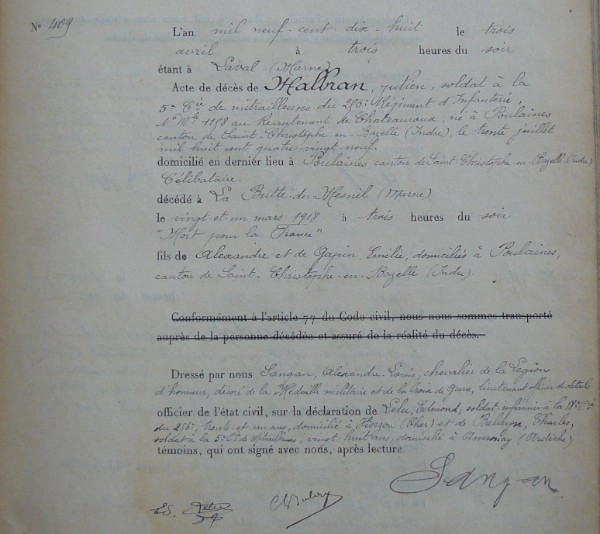 N° 409
L'an mil neuf-cent dix-huit le trois
avril à trois heures du soir
étant à Laval (Marne)
Acte de décès de Malbran, Julien, soldat à la
5e Cie de mitrailleuses du Régiment d'Infanterie,
N° Mle 1198 au Recrutement de Chateauroux, né à Poulaines
canton de Saint-Christophe-en-Bazelle (Indre), le trente juillet
mil huit cent quatre vingt neuf.
domicilié en dernier lieu à Poulaines canton de Saint-Christophe-en-Bazelle (Indre)
Célibataire.
décédé à La Butte-du-Mesnil (Marne)
le vingt-et-un mars 1918 à trois heures du soir
"Mort pour la France"
fils de Alexandre et de Emilie, domiciliés à Poulaines,
canton de Saint-Christophe-en-Bazelle (Indre).
Conformément à l'article 77 du Code civil, nous nous sommes transporté
auprès de la personne décédée et assuré de la réalité du décès.
Dressé par nous Sangan, Alexandre-Louis, chevalier de la Légion
d'honneur, décoré de la Médaille militaire et de la Croix de Guerre, lieutenant officier de détails
officier de l'état civil, sur la déclaration de Edmond, soldat infirmier à la
du 256e, trente et un ans, domicilié à (Cher) et de Charles,
soldat à la 5e Cie de Mitrailleuses, vingt huit ans, domicilié à Annonay (Ardèche)
témoins, qui ont signé avec nous, après lecture.
Sangan